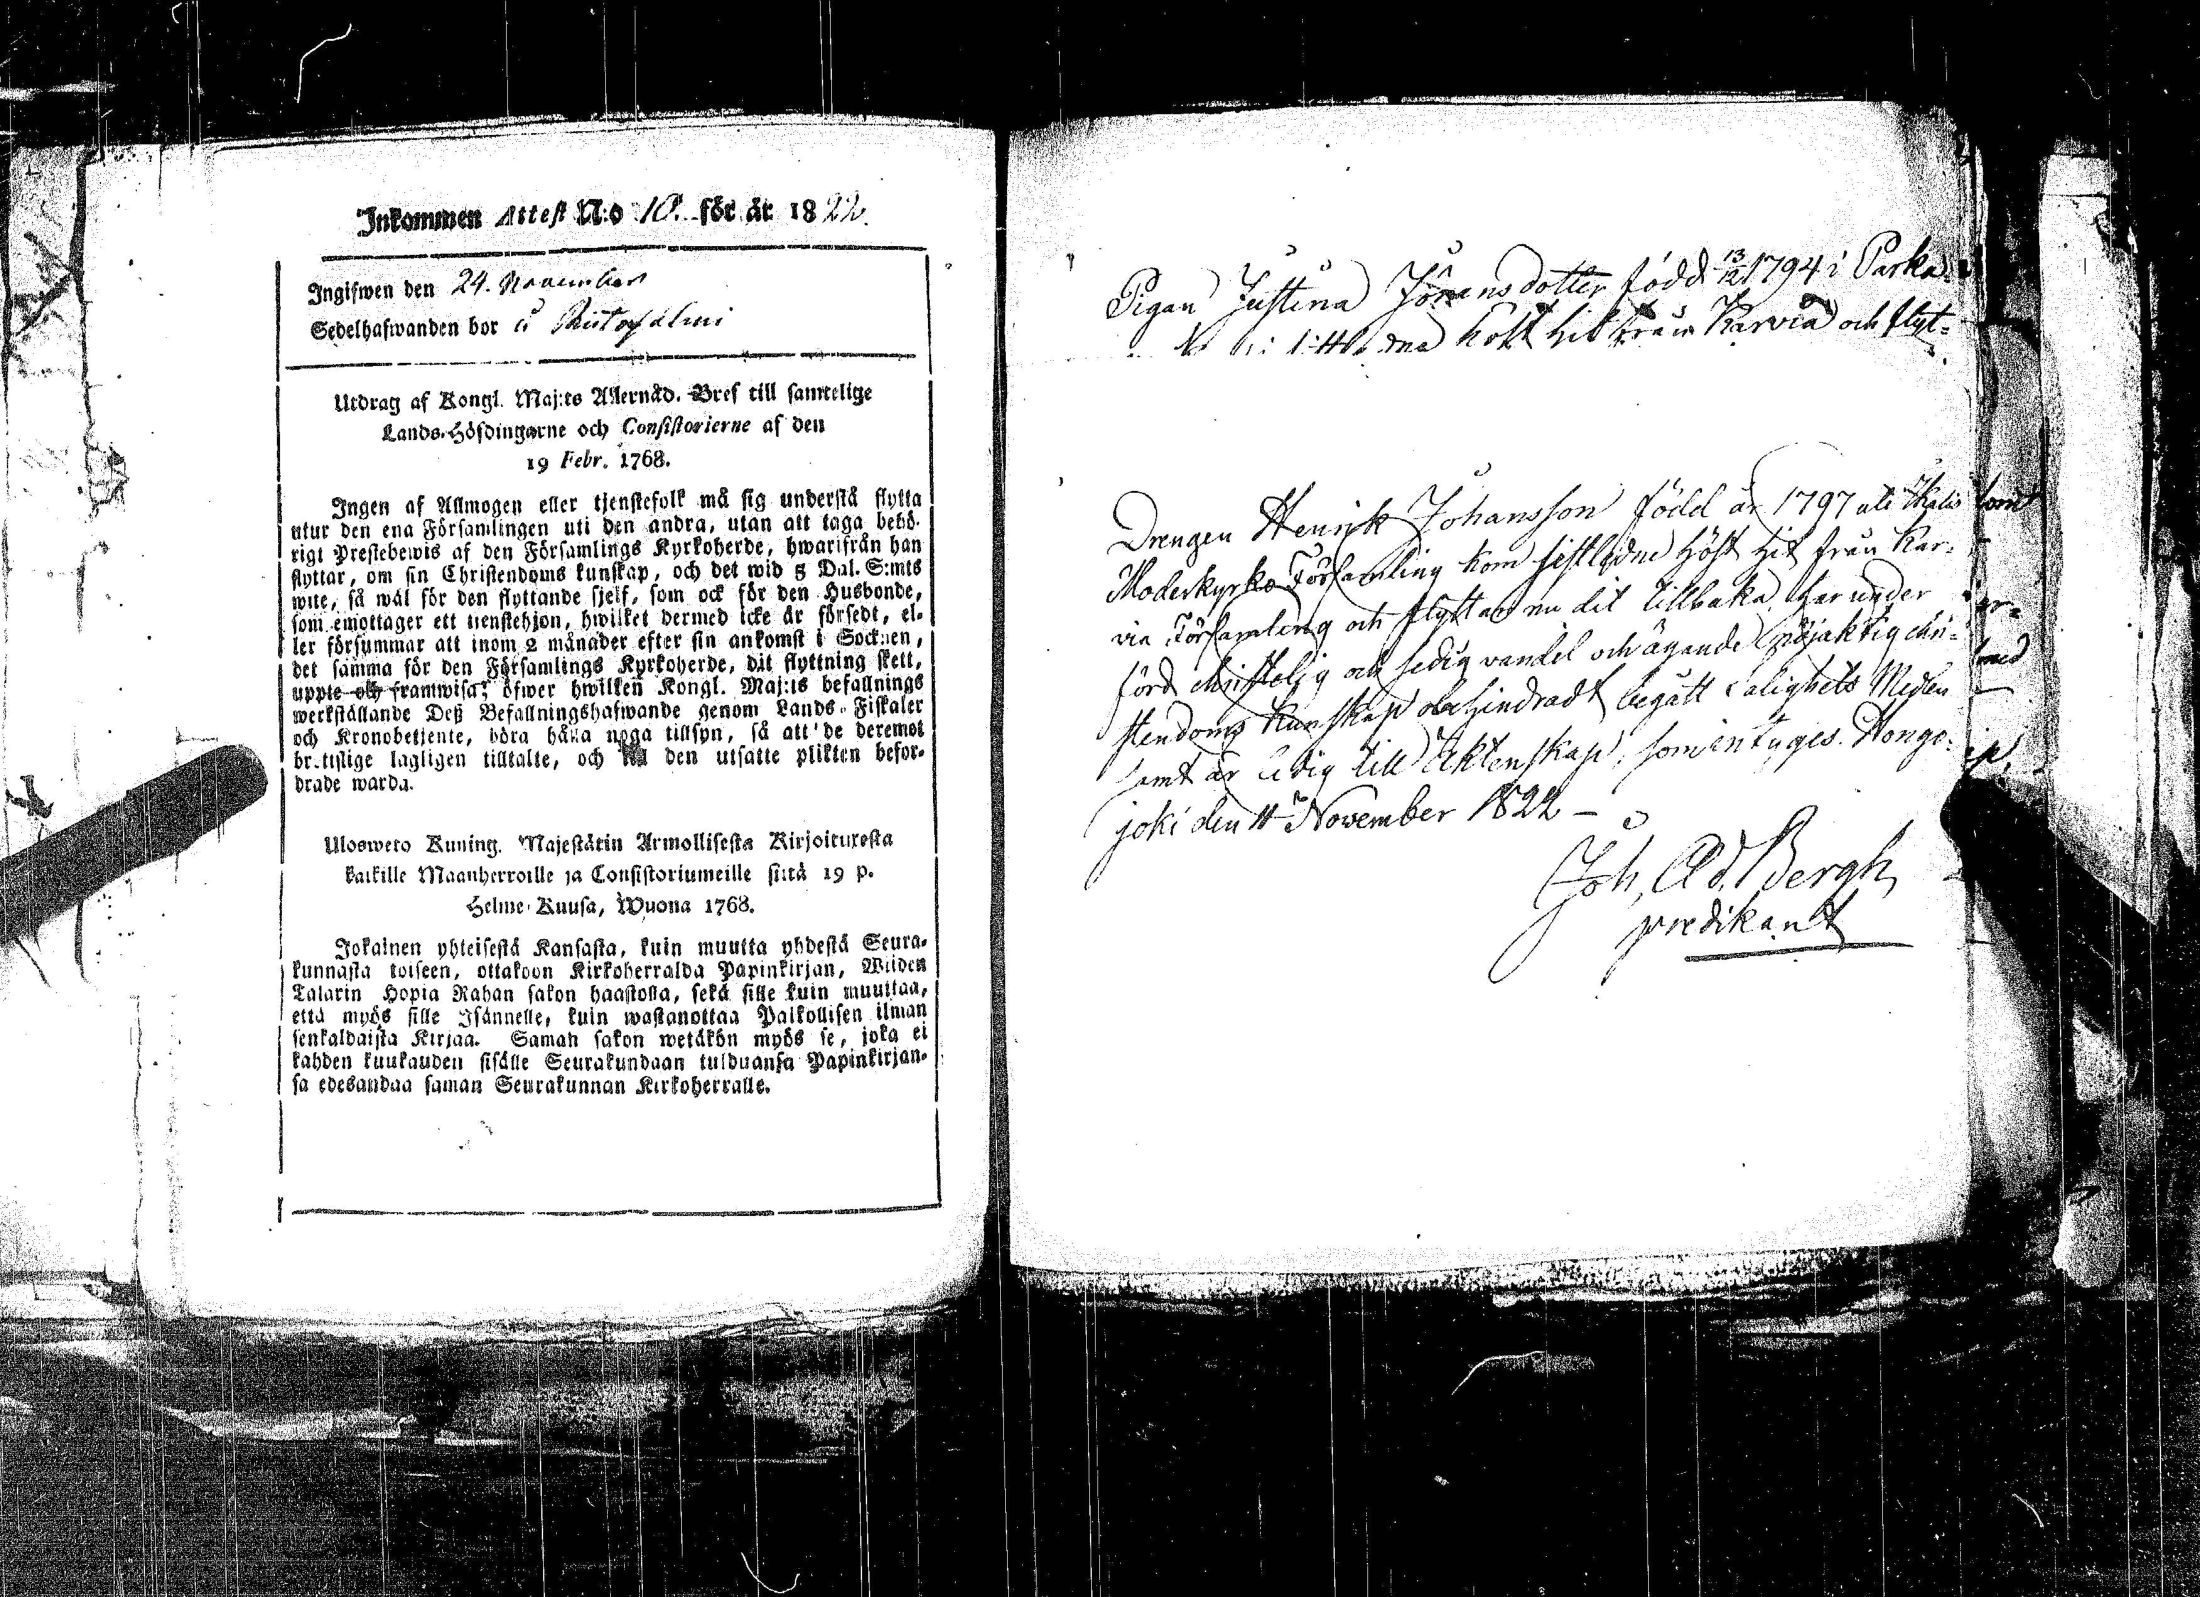 Inkommen Attest N:o 10. för år 1822.
Ingifwen den 24. November
Sedelhafwanden bor å
Utdrag af Kongl. Maj:ts Allernåd. Bref till samtelige
Lands-Höfdingarne och Consistorierne af den
19 Febr. 1768.
Ingen af Allmogen eller tjenstefolk må sig understå flytta
utur den ena Församlingen uti den andra, utan att taga behö-
rigt Prestebewis af den Församlings Kyrkoherde, hwarifrån han
flyttar, om sin Christendoms kunskap, och det wid 5 Dal. S:mts
wite, så wäl för den flyttande sjelf, som ock för den Husbonde,
som emottager ett tienstehjon, hwilket dermed icke är försedt, el-
ler försummar att inom 2 månader efter sin ankomst i Socknen,
det samma för den Församlings Kyrkoherde, dit flyttning skett,
uppte och framwisa; öfwer hwilken Kongl. Maj:ts befallnings
werkställande Deß Befallningshafwande genom Lands-Fiskaler
och Kronobetjente, böra hålla noga tillsyn, så att de deremot
brottslige lagligen tilltalte, och till den utsatte plikten befor-
drade warda.
Ulosweto Kuning. Majestätin Armollisesta Kirjoituxesta
kaikille Maanherroille ja Consistoriumeille siitä 19 p.
Helme-Kuusa, Wuona 1768.
Jokainen yhteisestä Kansasta, kuin muutta yhdestä Seura-
kunnasta toiseen, ottakoon Kirkoherralda Papinkirjan, Wiiden
Talarin Hopia Rahan sakon haastolla, sekä sille kuin muuttaa,
että myös sille Isännelle, kuin wastanottaa Palkollisen ilman
senkaldaista Kirjaa. Saman sakon wetäkön myös se, joka ei
kahden kuukauden sisälle Seurakundaan tulduansa Papinkirjan-
sa edesandaa saman Seurakunnan Kirkoherralle.
Pigan Justina Jöransdotter född 13/12 1794 i Parka
höst hit från Karvia och flyt-
Drengen Henrik Johansson född år 1797 uti
Moderkyrko Församling kom sistledne höst hit från Kar-
via Församling och flyttar nu dit tillbaka, har under
förd christelig och sedig vandel och ägande nöjaktig chri-
stendoms kunskap obehindradt begått Salighets Medlen
samt är ledig till Äktenskap; som intyges. Hongo-
joki den 11 November 1822 —
Joh. Ad. Bergh
predikant